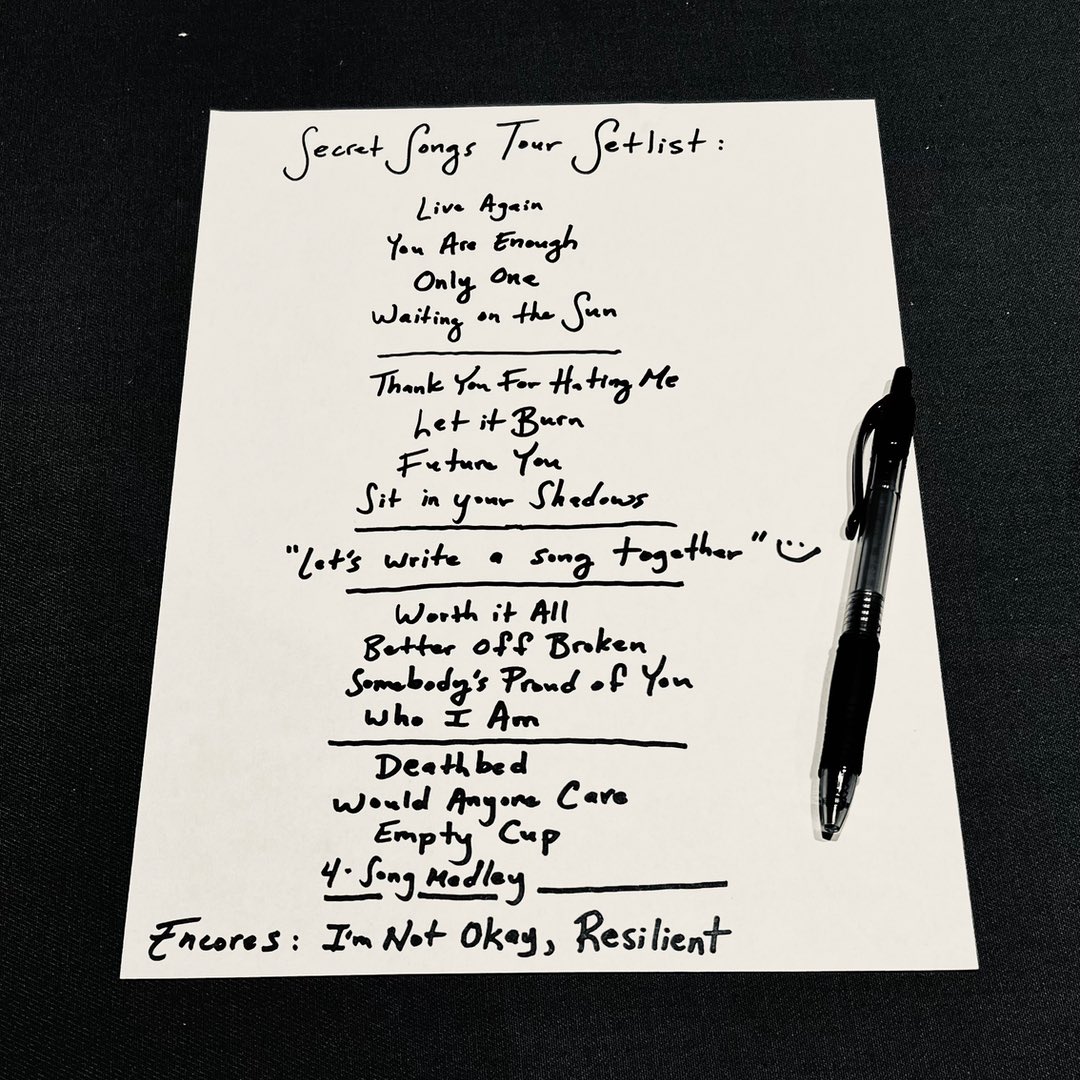 Secret Songs Tour Setlist:
Live Again
You Are Enough
Only One
Waiting on the Sun
Thank You For Hating Me
Let it Burn
Future You
Sit in your Shadows
"Let's write a song together"
Worth it All
Better Off Broken
Somebody's Proud of You
Who I Am
Deathbed
Would Anyone Care
Empty Cup
4-Song Medley
Encores: I'm Not Okay, Resilient